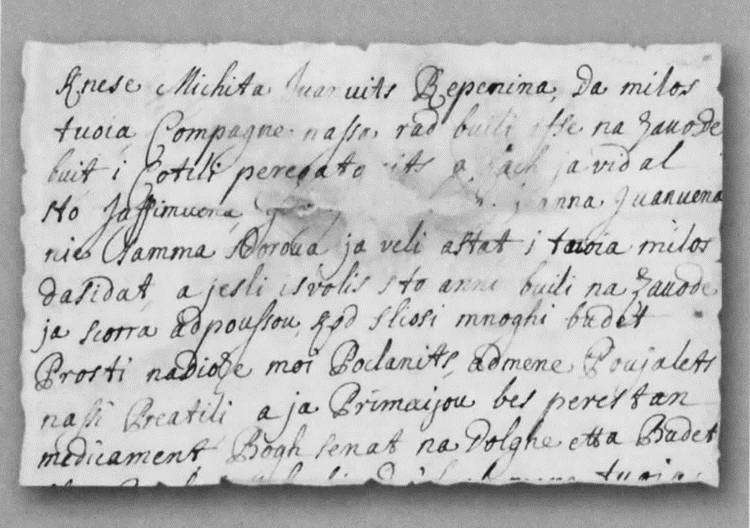 Knese Michita Juanvits Repenina, da milos
tuoia Compagne nasso rad buili esse na Zauode
buit i Cotili peregato ja vidal
sto Jaffimuena Juanuena
nie samma sdorova ja veli astat i tuoia milos
dasidat, a jesli isvolis sto anni buili na Zauode
ja scorra adpoussou, kod sliosi mnoghi budet
Prosti nadioze moi Poclanits, admene Poujalets
nassi Preatili a ja Primaijou bes perestan
medicament Bogh senat na Dolghe etta Budet
tuoia